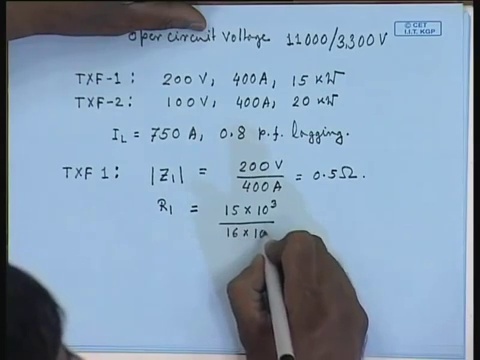 Open circuit Voltage 11000/3300V
© CET
I.I.T. KGP
TXF-1: 200 V, 400A, 15 kW
TXF-2: 100 V, 400A, 20 kW
IL = 750 A, 0.8 p.f. lagging.
TXF 1: |Z1| = 200 V / 400A = 0.5Ω.
R1 = 15 × 10³ / 16 × 10